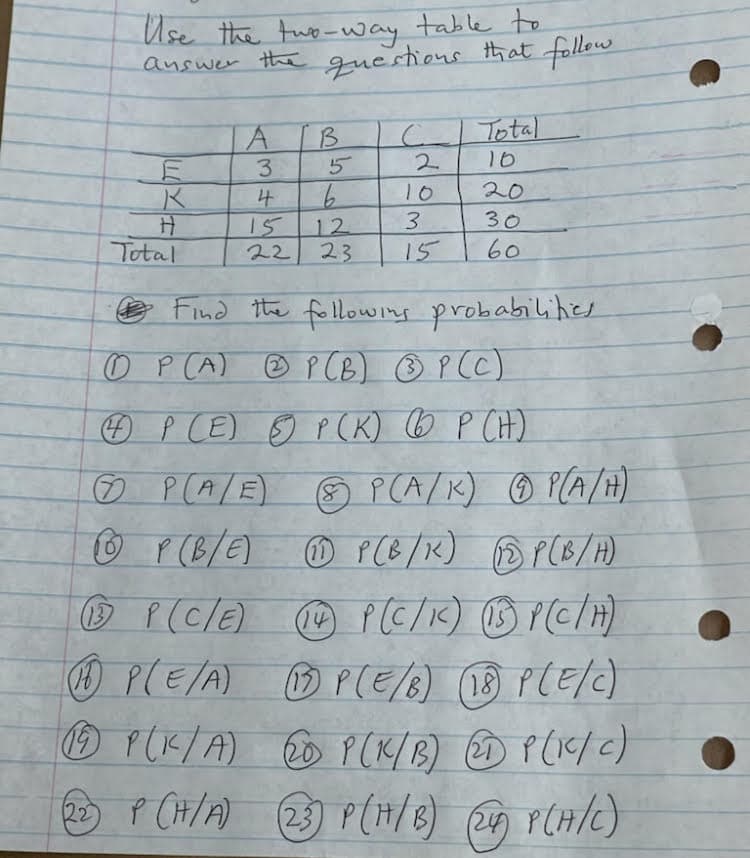 Use the two-way table to
answer the questions that follow
A B C Total
E 3 5 2 10
K 4 6 10 20
H 15 12 3 30
Total 22 23 15 60
Find the following probabilities
① P(A) ② P(B) ③ P(C)
④ P(E) ⑤ P(K) ⑥ P(H)
⑦ P(A/E) ⑧ P(A/K) ⑨ P(A/H)
⑩ P(B/E) ⑪ P(B/K) ⑫ P(B/H)
⑬ P(C/E) ⑭ P(C/K) ⑮ P(C/H)
⑯ P(E/A) ⑰ P(E/B) ⑱ P(E/C)
⑲ P(K/A) ⑳ P(K/B) ㉑ P(K/C)
㉒ P(H/A) ㉓ P(H/B) ㉔ P(H/C)